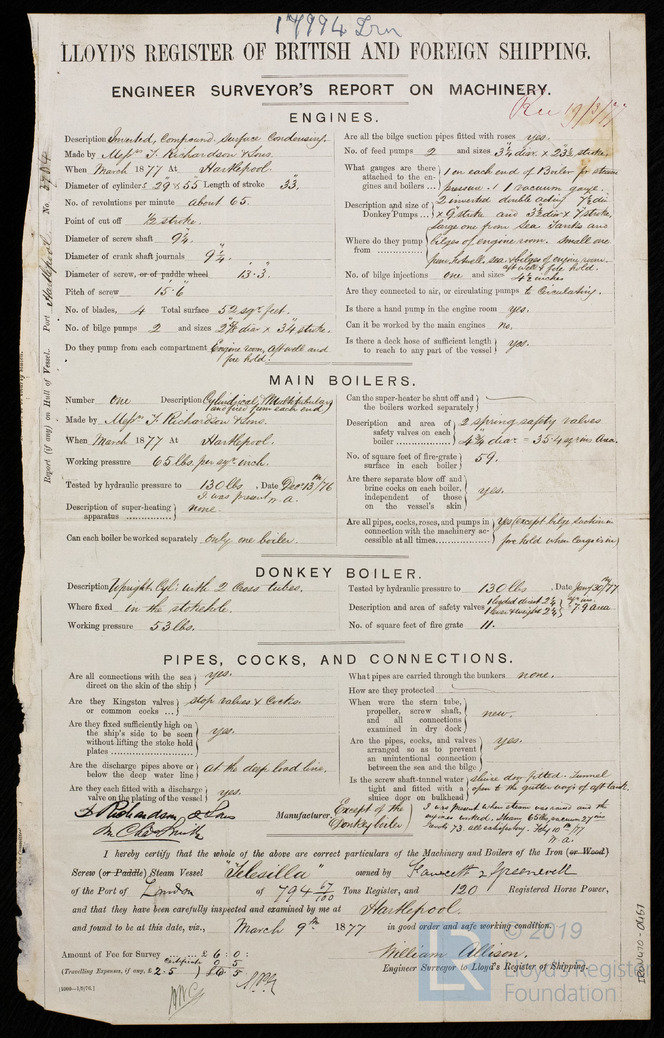 17994 Irn
LLOYD'S REGISTER OF BRITISH AND FOREIGN SHIPPING.
ENGINEER SURVEYOR'S REPORT ON MACHINERY.
Rec 19/3/77
ENGINES.
Description Inverted, Compound, Surface Condensing.
Made by Messrs T. Richardson & Sons.
When March 1877 At Hartlepool.
Diameter of cylinders 29" & 55" Length of stroke 33".
No. of revolutions per minute about 65.
Point of cut off ½ stroke.
Diameter of screw shaft 9¼.
Diameter of crank shaft journals 9¼.
Diameter of screw, or of paddle wheel 13'.3"
Pitch of screw 15'.6"
No. of blades, 4 Total surface 52 sq. feet.
No. of bilge pumps 2 and sizes diar. x stroke.
Do they pump from each compartment Engine room, aft well and
fore hold.
Are all the bilge suction pipes fitted with roses yes.
No. of feed pumps 2 and sizes diar. x stroke.
What gauges are there attached to the engines and boilers ... 1 on each end of Boiler for steam
pressure & 1 vacuum gauge.
Description and size of Donkey Pumps ... 2 inverted double acting
x 9" stroke and diar x 7" stroke
Where do they pump from ... Large one from sea, tanks and
bilges of engine room. Small one
from hotwell, sea & bilges of engine room
aft well & fore hold.
No. of bilge injections one and sizes 4½ inches
Are they connected to air, or circulating pumps to Circulating.
Is there a hand pump in the engine room yes.
Can it be worked by the main engines no.
Is there a deck hose of sufficient length to reach to any part of the vessel yes.
Report (if any) on Hull of Vessel. Port Hartlepool No.
MAIN BOILERS.
Number one Description Cylindrical, Multitubular
(and fired from each end)
Made by Messrs T. Richardson & Sons.
When March 1877 At Hartlepool.
Working pressure 65 lbs. per sqr. inch.
Tested by hydraulic pressure to 130 lbs, Date Decr 13th/76
I was present W.A.
Description of super-heating apparatus ... none.
Can each boiler be worked separately only one boiler.
Can the super-heater be shut off and the boilers worked separately
Description and area of safety valves on each boiler ... 2 spring safety valves
4¾ diar. = 35.4 sq ins Area.
No. of square feet of fire-grate surface in each boiler 59.
Are there separate blow off and brine cocks on each boiler, independent of those on the vessel's skin yes.
Are all pipes, cocks, roses, and pumps in connection with the machinery accessible at all times ... yes (except bilge suction in
fore hold when cargo is in)
DONKEY BOILER.
Description Upright Cyl: with 2 cross tubes.
Where fixed in the stokehole.
Working pressure 53 lbs.
Tested by hydraulic pressure to 130 lbs, Date Jany 30th/77
Description and area of safety valves 1 loaded direct 2¼
1 lever & weight 2¼ sqr ins. 7.9 area
No. of square feet of fire grate 11.
PIPES, COCKS, AND CONNECTIONS.
Are all connections with the sea direct on the skin of the ship yes.
Are they Kingston valves or common cocks ... stop valves & Cocks.
Are they fixed sufficiently high on the ship's side to be seen without lifting the stoke hold plates ... yes.
Are the discharge pipes above or below the deep water line at the deep load line.
Are they each fitted with a discharge valve on the plating of the vessel yes.
What pipes are carried through the bunkers none.
How are they protected
When were the stern tube, propeller, screw shaft, and all connections examined in dry dock new.
Are the pipes, cocks, and valves arranged so as to prevent an unintentional connection between the sea and the bilge yes.
Is the screw shaft-tunnel water tight and fitted with a sluice door on bulkhead sluice door fitted. Tunnel
open to the gutter ways of aft tank.
T. Richardson & Sons
Manufacturer. Except of the
Donkey boiler
I was present when steam was raised and the
engines worked. Steam 65 lbs, vacuum 27 ins
73. all satisfactory. Feby 10th/77
W.A.
I hereby certify that the whole of the above are correct particulars of the Machinery and Boilers of the Iron (or Wood)
Screw (or Paddle) Steam Vessel "Telesilla" owned by Fawcett & Greenwell
of the Port of London of 794 67/100 Tons Register, and 120 Registered Horse Power,
and that they have been carefully inspected and examined by me at Hartlepool.
and found to be at this date, viz., March 9th 1877 in good order and safe working condition.
William Allison.
Engineer Surveyor to Lloyd's Register of Shipping.
Amount of Fee for Survey ... £ 6 : 0 :
Certificate 0 5
(Travelling Expenses, if any, £ 2.5 ) £6 5
[1000—1/9/76.]
IRON470-0461
LR
© 2019
Lloyd's Register
Foundation